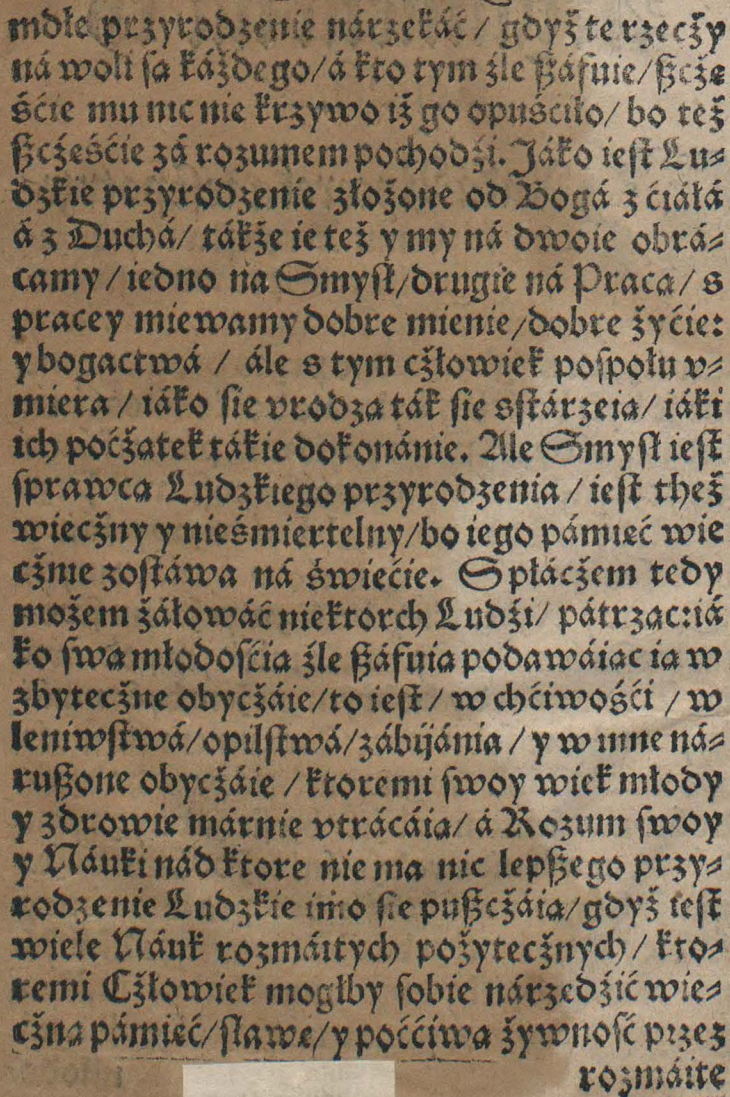 mdłe przyrodzenie nárzekáć / gdyż te rzecży
ná woli są káżdego/á kto tym źle ſzáfuie/ſzcżę
śćie mu nic nie krzywo iż go opuśćiło/bo też
ſzcżeśćie zá rozumem pochodźi. Jáko ieſt Lu⸗
dzkie przyrodzenie złożone od Bogá z ćiáłá
á z Duchá/ tákże ie też y my ná dwoie obrá⸗
camy / iedno na Smyſł/drugie ná Pracą/ s
pracey miewamy dobre mienie/dobre żyćie:
y bogactwá / ále s tym cżłowiek poſpołu v⸗
miera / iáko ſie vrodzą ták ſie sſtárzeią/ iáki
ich pocżątek tákie dokonánie. Ale Smyſł ieſt
ſprawcą Ludzkiego przyrodzenia / ieſt theż
wiecżny y nieśmiertelny/bo iego pámięć wie
cżnie zoſtáwa ná świećie. S płácżem tedy
możem żáłowáć niektorch Ludźi/ pátrząc:iá
ko ſwą młodośćią źle ſzáfuią podawáiąc ią w
zbytecżne obycżáie/to ieſt / w chćiwośći / w
leniwſtwá/opilſtwá/zábijánia / y w inne ná⸗
ruſzone obycżáie / ktoremi ſwoy wiek młody
y zdrowie márnie vtrácáią/ á Rozum ſwoy
y Náuki nád ktore nie ma nic lepſzego przy⸗
rodzenie Ludzkie imo ſie puſzcżáią/gdyż ieſt
wiele Náuk rozmáitych pożytecżnych / kto⸗
remi Cżłowiek mogłby ſobie nárządźić wie⸗
cżną pámięć/ſławę/y poććiwą żywność przez
rozmáite